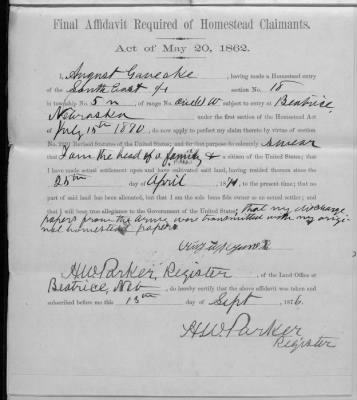 Final Affidavit Required of Homestead Claimants.
Act of May 20, 1862.
I, August, having made a Homestead entry
of the South East 1/4 section No. 18
in township No. 5 n, of range No. W subject to entry at Beatrice,
Nebraska under the first section of the Homestead Act
of July 15th 1870, do now apply to perfect my claim thereto by virtue of section
No. 2291 Revised Statutes of the United States; and for that purpose do solemnly Swear
that I am the head of a family & a citizen of the United States; that
I have made actual settlement upon and have cultivated said land, having resided thereon since the
25th day of April, 1871, to the present time; that no
part of said land has been alienated, but that I am the sole bona fide owner as an actual settler; and
that I will bear true allegiance to the Government of the United States; that my discharge
papers from the Army were transmitted with my original homestead papers
I, H W Parker, Register, of the Land Office at
Beatrice, Neb, do hereby certify that the above affidavit was taken and
subscribed before me this 13th day of Sept, 1876.
H W Parker
Register